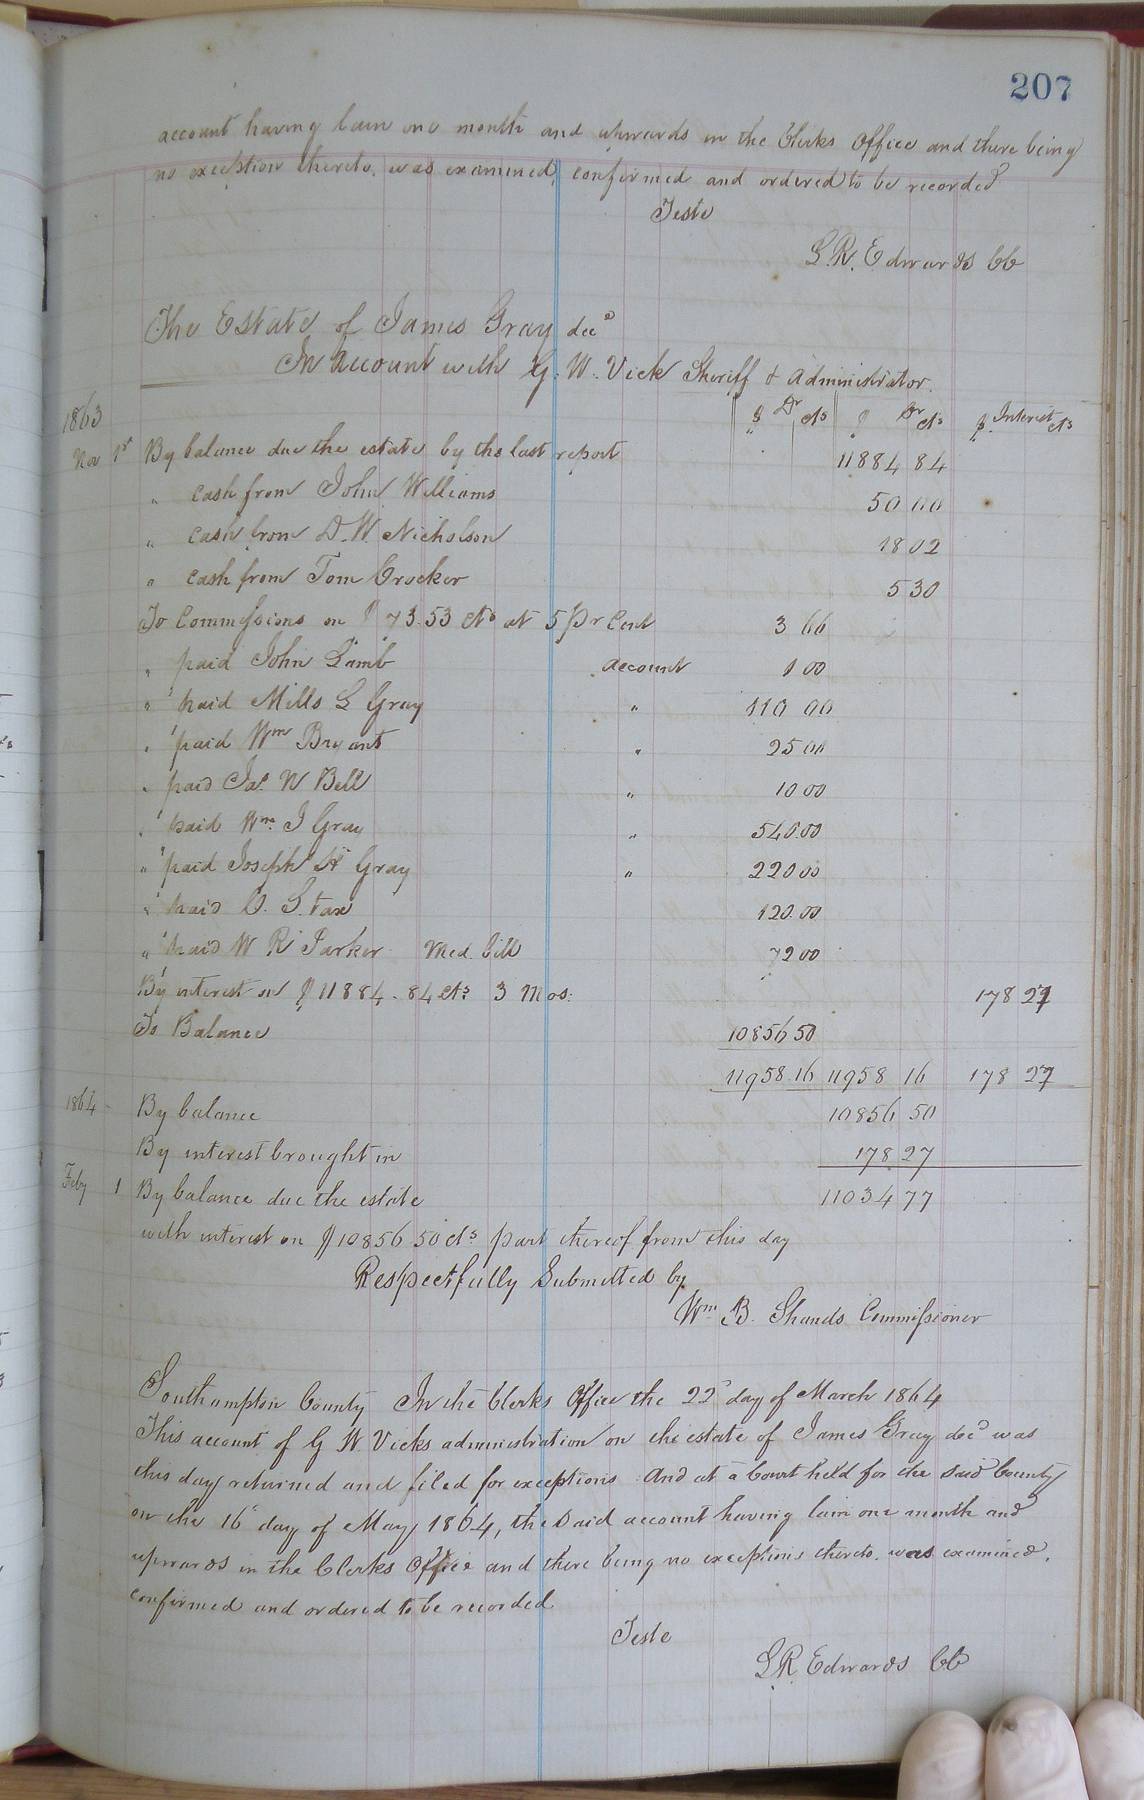 207
account having lain one month and upwards in the Clerks Office and there being
no exception thereto, was examined, confirmed and ordered to be recorded
Teste
L. R. Edwards CC
The Estate of James Gray decd
In Account with G. W. Vick Sheriff & Administrator.
$ Dr cts $ Dr cts $ Interest cts
1863
Nov 1st By balance due the estate by the last report 11884 84
" cash from John Williams 50 00
" cash from D. W. Nicholson 18 02
" cash from Tom Crocker 5 30
To Commissions on $ 73.53 cts at 5 Pr Cent 3 66
" paid John Lamb account 1 00
" paid Mills L Gray " 110 00
" paid Wm Bryant " 25 00
" paid Jas. N Bell " 10 00
" paid Wm. J Gray " 540.00
" paid Joseph H Gray " 220 00
" paid C. S. tax 120.00
" paid W R Parker Med. bill 72 00
By interest on $ 11884.84 cts 3 Mos. 178 27
To Balance 10856 50
11958.16 11958 16 178 27
1864 By balance 10856 50
By interest brought in 178.27
Feby 1 By balance due the estate 11034 77
with interest on $ 10856 50 cts part thereof from this day
Respectfully Submitted by
Wm B. Shands Commissioner
Southampton County In the Clerks Office the 22d day of March 1864
This account of G W. Vicks administration on the estate of James Gray decd was
this day returned and filed for exceptions And at a Court held for the said County
on the 16th day of May 1864, the said account having lain one month and
upwards in the Clerks Office and there being no exceptions thereto, was examined,
confirmed and ordered to be recorded
Teste
L R. Edwards CC